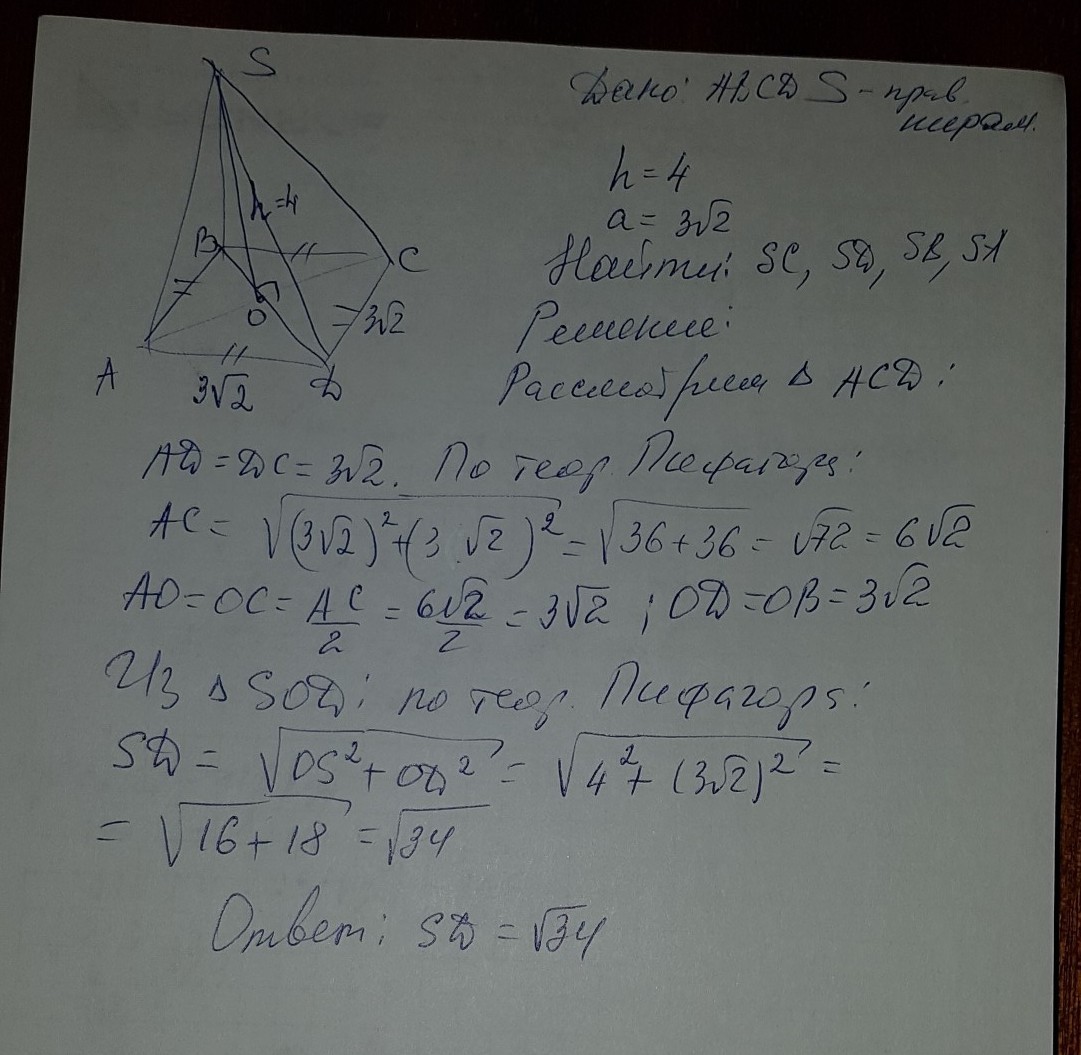 S
h=4
B
C
O
A
D
3√2
3√2
Дано: ABCD S - прав. пирам.
h = 4
a = 3√2
Найти: SC, SD, SB, SA
Решение:
Рассмотрим Δ ACD:
AD = DC = 3√2. По теор. Пифагора:
AC = √((3√2)²+(3 √2)²) = √(36+36) = √72 = 6√2
AO = OC = AC/2 = 6√2/2 = 3√2 ; OD = OB = 3√2
Из Δ SOD: по теор. Пифагора:
SD = √(OS² + OD²) = √(4² + (3√2)²) =
= √(16 + 18) = √34
Ответ: SD = √34